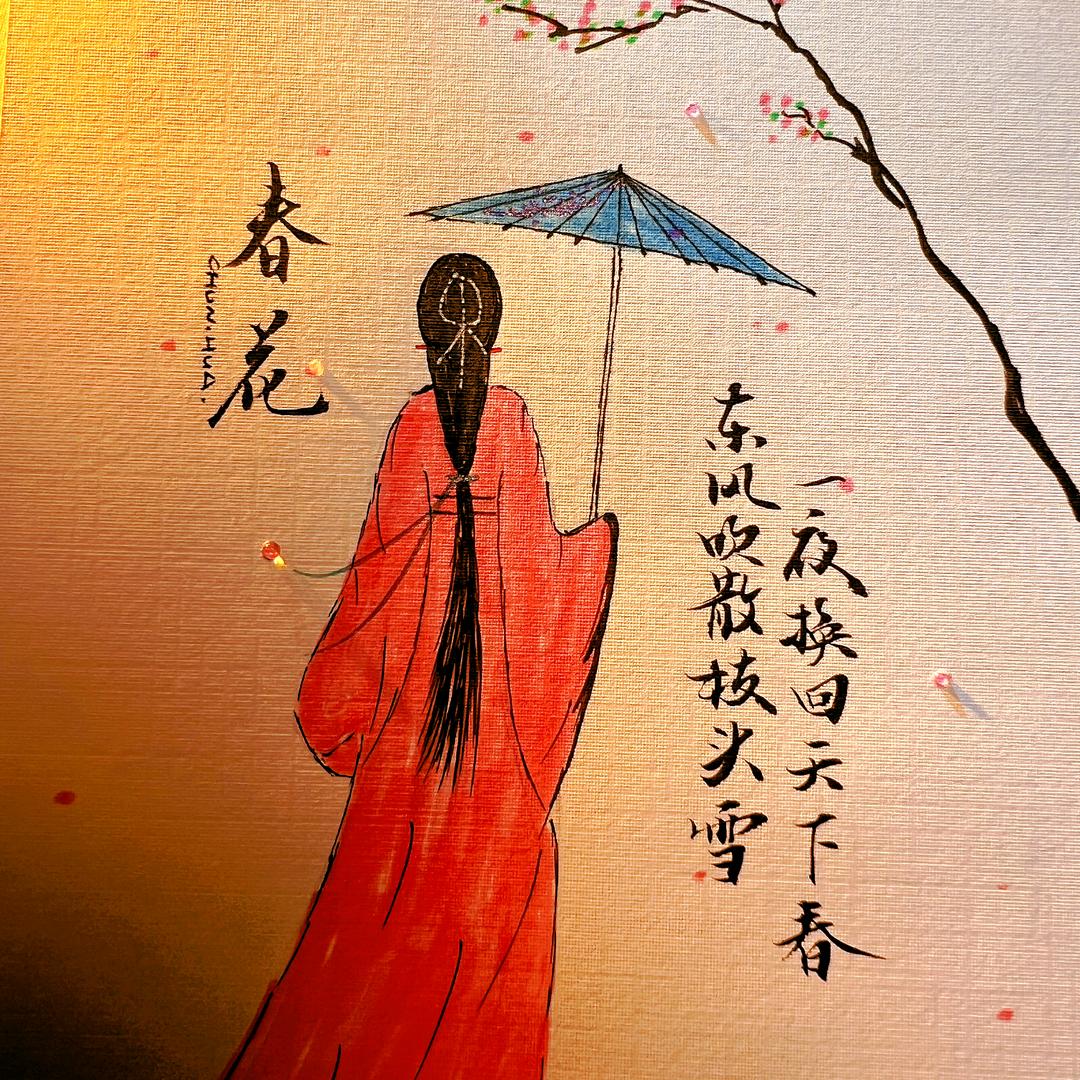 春花
CHUN.HUA.
东风吹散枝头雪
一夜换回天下春